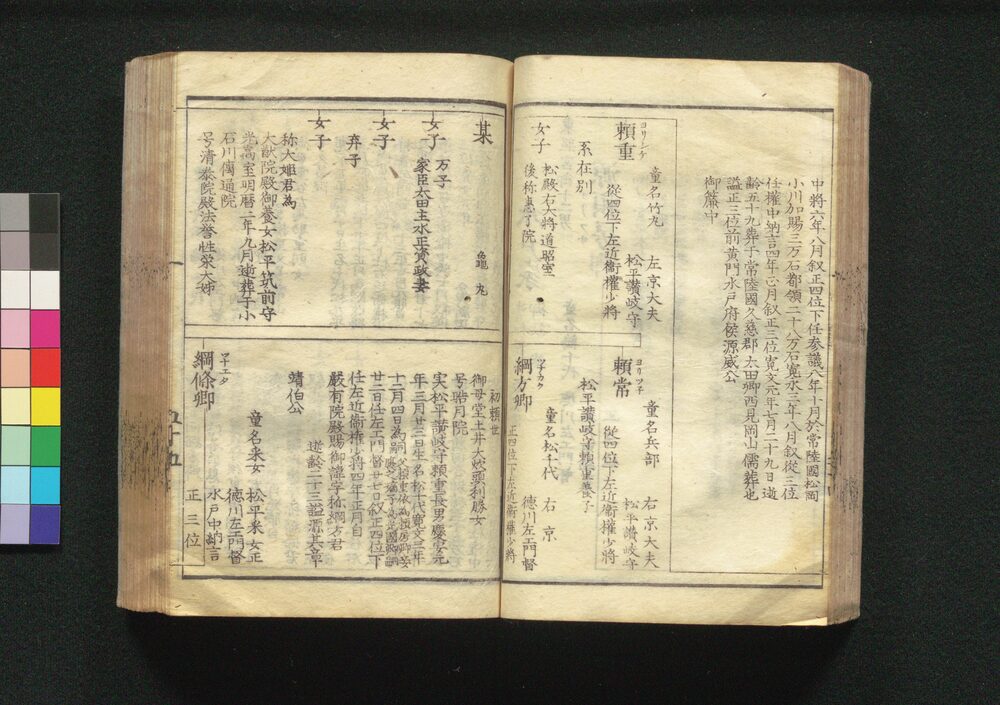 中將六年八月叙正四位下任参議八年十月於常陸國松岡
小川加賜三万石都領二十八万石寛永三年八月叙從三位
任權中納言四年正月叙正三位寛文元年七月二十九日逝
齢五十九葬于常陸國久慈郡太田郷西見岡山儒葬也
謚正三位前黄門水戸府侯源威公
御簾中
頼重
ヨリシケ
童名竹丸
左京大夫
松平讃岐守
從四位下左近衞權少將
系在別
女子
松殿右大將道昭室
後称恵了院
頼常
ヨリツネ
童名兵部
右京大夫
松平讃岐守
從四位下左近衞權少將
松平讃岐守頼重養子
綱方卿
ツナカタ
童名松千代
右京
徳川左衛門督
正四位下左近衞權少將
某
亀丸
女子
万子
家臣太田主水正資政妻
女子
女子
弃子
女子
称大姫君為
大猷院殿御養女松平筑前守
光髙室明暦二年九月逝葬于小
石川傳通院
号清泰院殿法誉性栄大姉
初頼世
御母堂土井大炊頭利勝女
号皓月院
実松平讃岐守頼重長男慶安元
年三月廿三日生名松千代寛文三年
十二月四日為嗣
廿二日任左衛門督廿七日叙正四位下
任左近衞權少將四年正月自
嚴有院殿賜御諱字称綱方君
逝齢二十三謚源其章
靖伯公
綱條卿
ツナエタ
童名采女
松平采女正
徳川左衛門督
水戸中納言
正三位
五十五